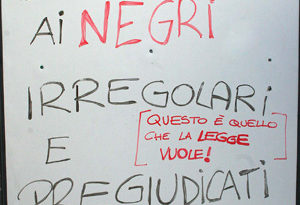 AI NEGRI
IRREGOLARI
[QUESTO È QUELLO
CHE LA LEGGE
VUOLE!]
E
PREGIUDICATI